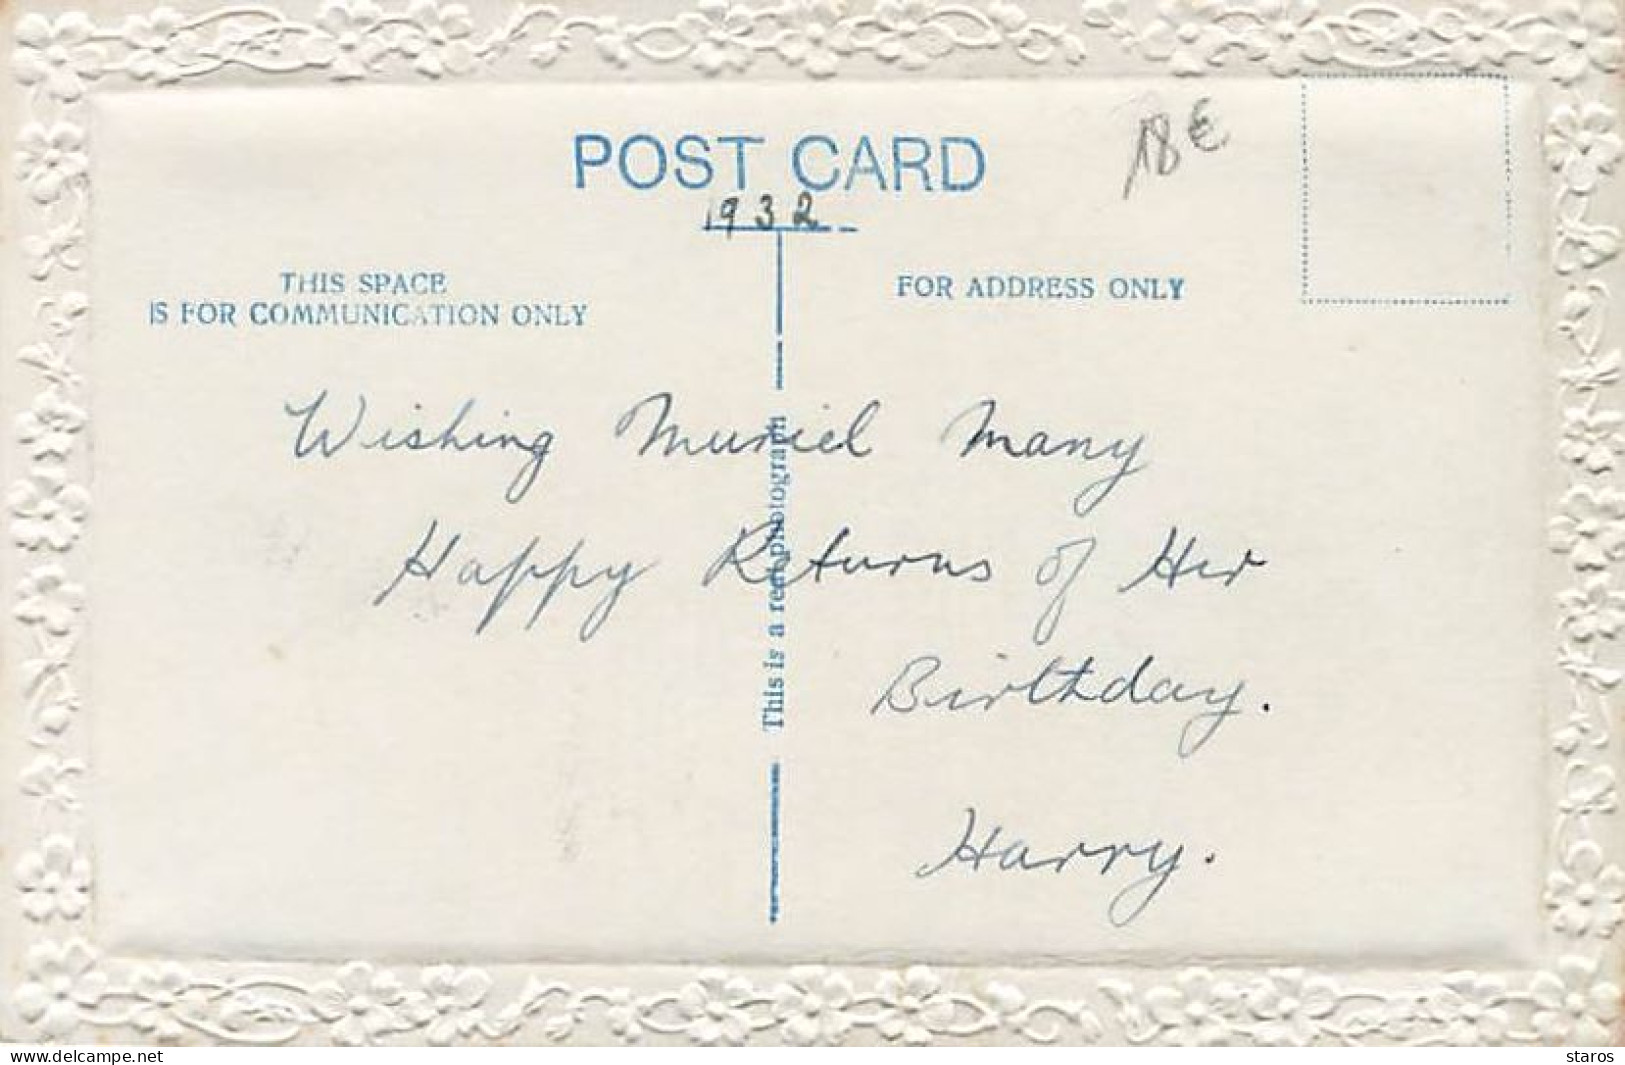 POST CARD
18 €
1932
THIS SPACE
IS FOR COMMUNICATION ONLY
FOR ADDRESS ONLY
This is a real photograph
Wishing Muriel Many
Happy Returns of Her
Birthday.
Harry.
delcampe.net
staros